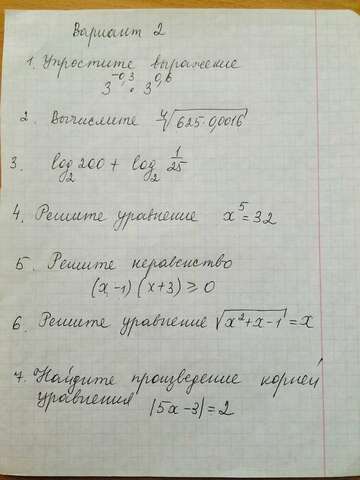 Вариант 2
1. Упростите выражение
3^-0,3 · 3^0,6
2. Вычислите ∜625·0,0016
3. log₂200 + log₂ 1/25
4. Решите уравнение x⁵=32
5. Решите неравенство
(x-1)(x+3)≥0
6. Решите уравнение √x²+x-1 = x
7. Найдите произведение корней
уравнения |5x-3|=2